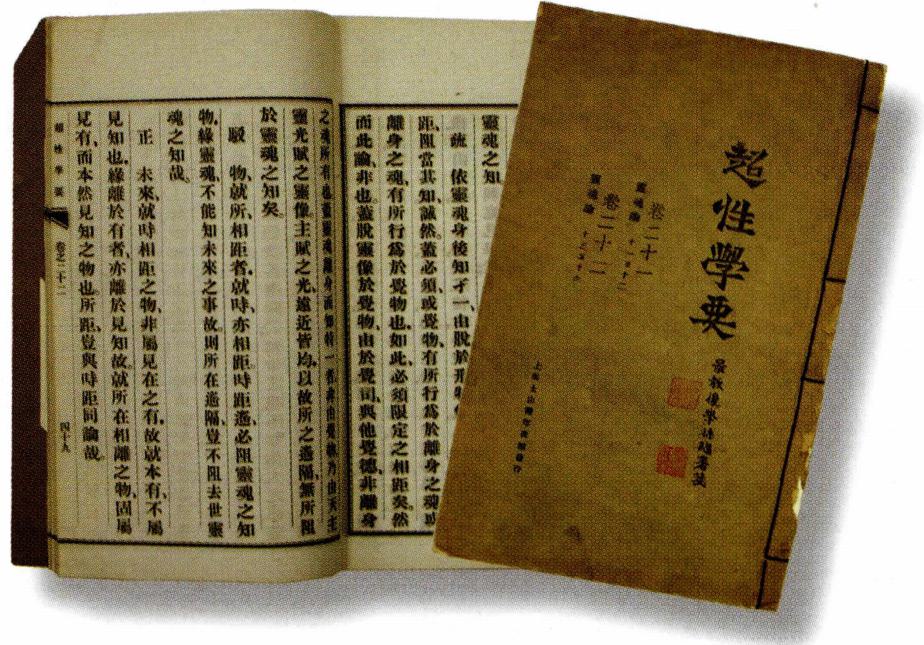 超性學要
景教後學
卷二十一
靈魂論 十一至十二
卷二十二
靈魂論
上海土山灣印書館發行
靈魂之知
疏 依靈魂身後知孑一、由脫於形物
距阻當其知、誠然。蓋必須或覺物、有所行爲於離身之魂或
離身之魂、有所行爲於覺物也。如此、必須限定之相距矣。然
而此論、非也。蓋脫靈像於覺物、由於覺司、與他覺德、非離身
之魂所有也靈魂離身而知特一者非由覺物乃由天主
靈光賦之靈像。主賦之光、遠近皆均、以故所之遙隔、無所阻
於靈魂之知矣。
駁 物就所、相距者、就時、亦相距。時距遙、必阻靈魂之知
物、緣靈魂、不能知未來之事故。則所在遙隔、豈不阻去世靈
魂之知哉。
正 未來、就時相距之物、非屬見在之有、故就本有、不屬
見知也。緣離於有者、亦離於見知故。就所在相離之物、固屬
見有、而本然見知之物也。所距豈與時距同論哉。
超性學要 卷之二十二 四十九